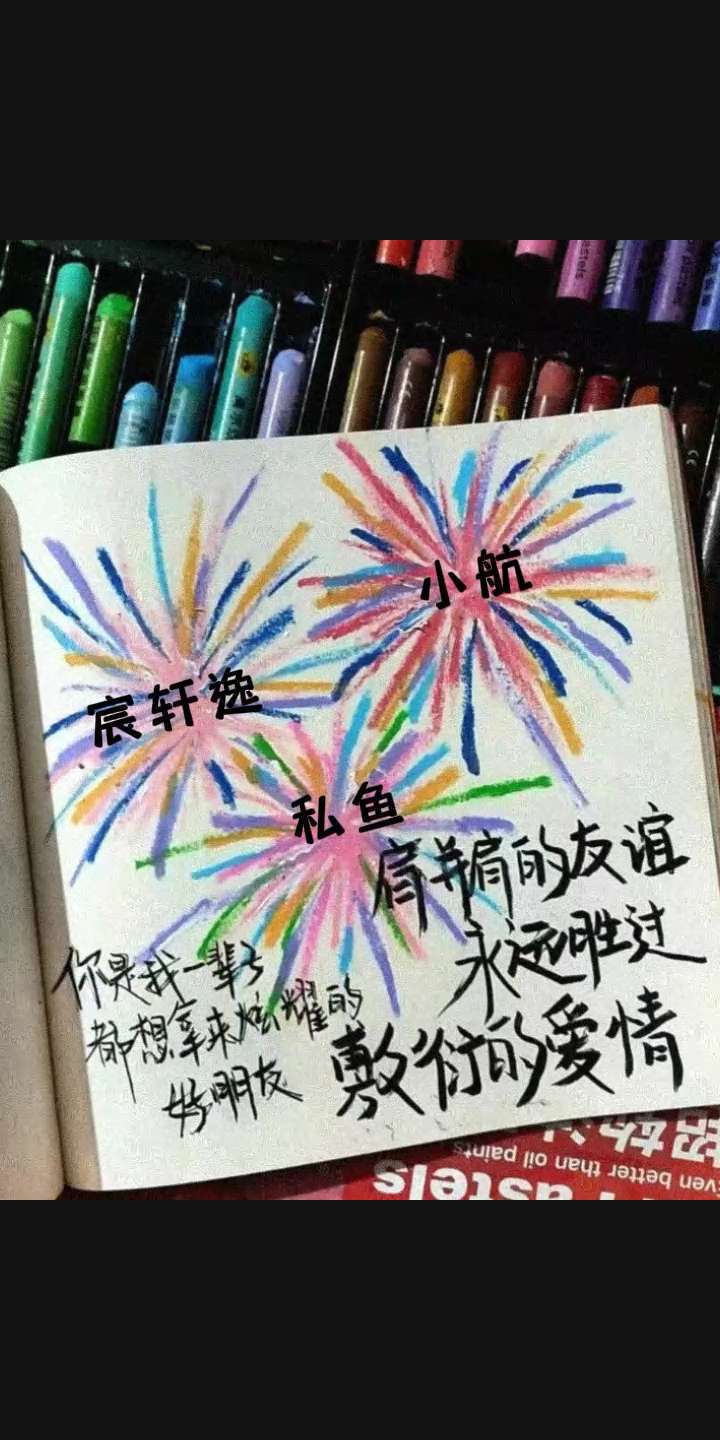 小航
宸轩逸
私鱼
肩并肩的友谊
永远胜过
敷衍的爱情
你是我一辈子
都想拿来炫耀的
好朋友
even better than oil paints
astels